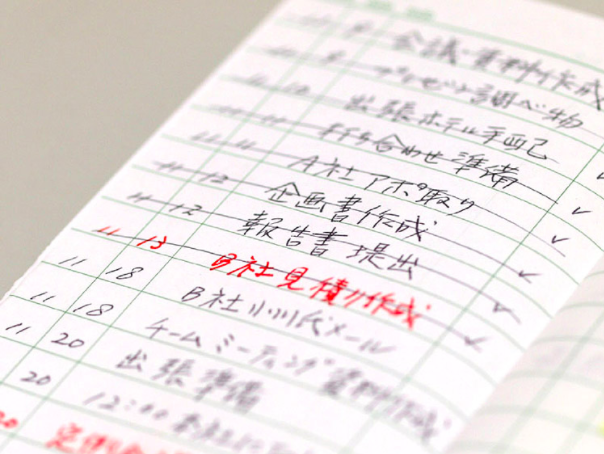 会議資料作成
プレゼント調べ物
出張ホテル手配
打ち合わせ準備
11 11 A社アポ取り
11 12 企画書作成
11 12 報告書提出
11 13 B社見積り作成
11 18 B社小川氏メール
11 18 チームミーティング資料作成
11 20 出張準備
20 12:00
20 定例会